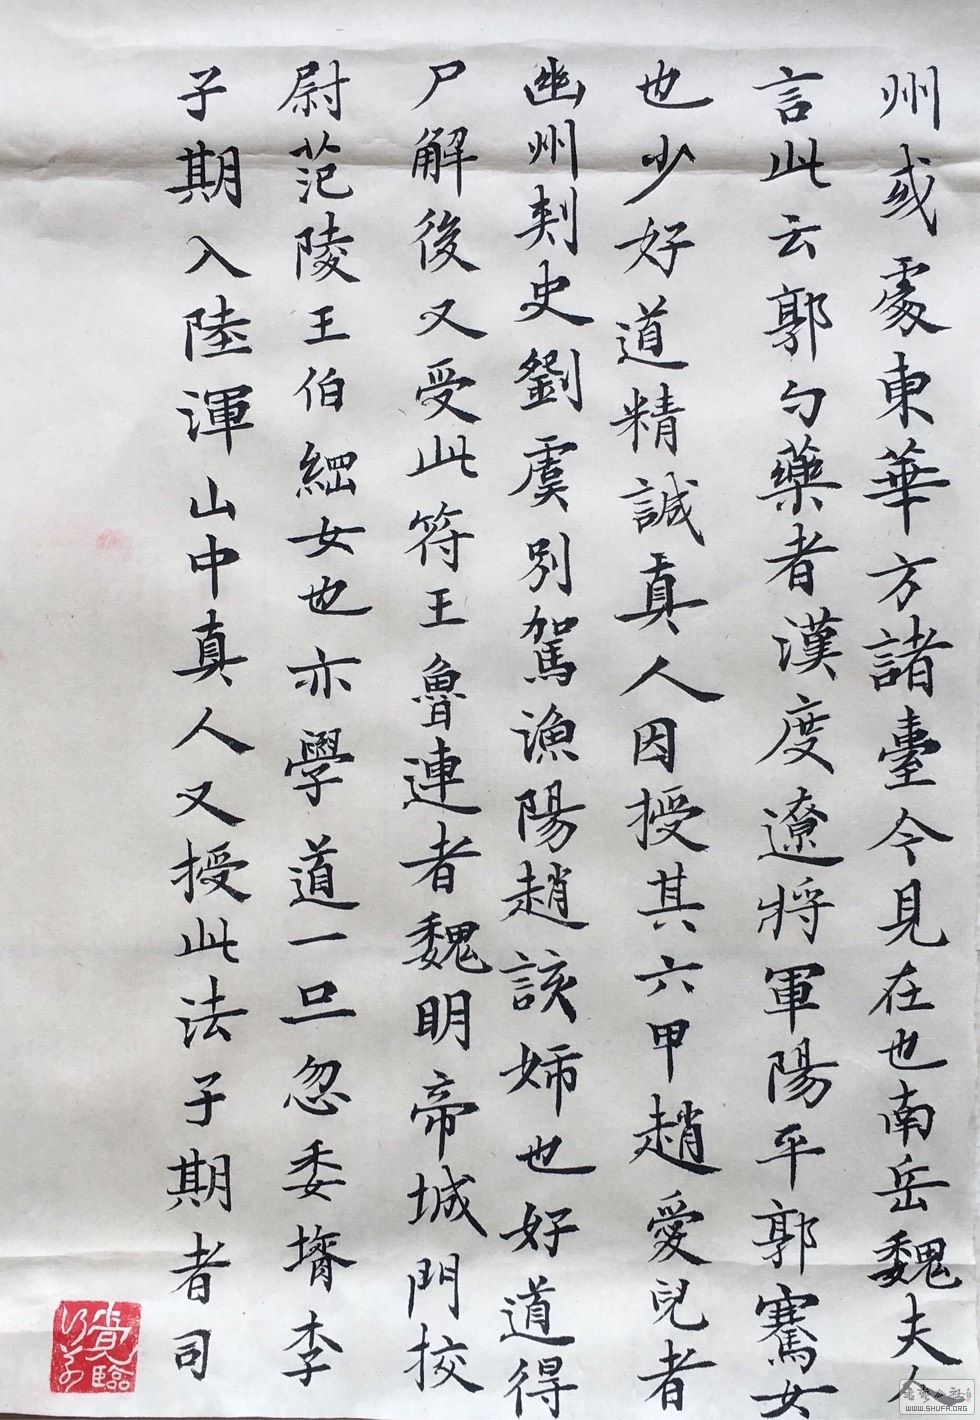 州或處東華方諸臺今見在也南岳魏夫人
言此云郭勺藥者漢度遼將軍陽平郭騫女
也少好道精誠真人因授其六甲趙愛兒者
幽州刾史劉虞別駕漁陽趙該姉也好道得
尸解後又受此符王魯連者魏明帝城門挍
尉范陵王伯綱女也亦學道一旦忽委壻李
子期入陸渾山中真人又授此法子期者司
覺
臨
書法公社
WWW.SHUFA.ORG